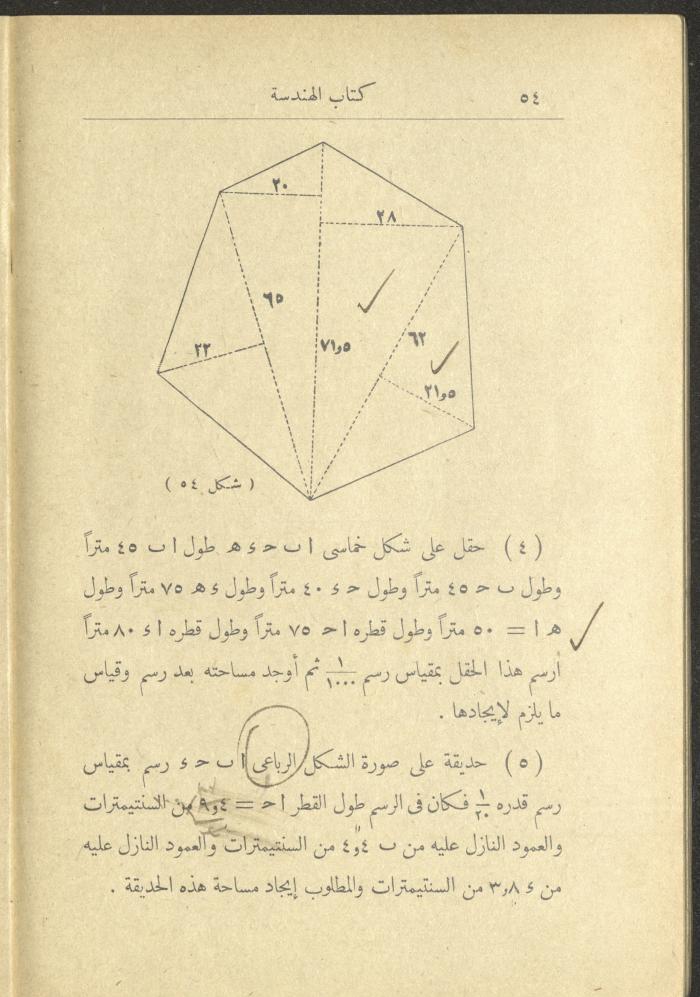 ٥٤ كتاب الهندسة
٢٠
٢٨
٦٥
٧١٫٥
٦٢
٢٢
٢١٫٥
( شكل ٥٤ )
( ٤ ) حقل على شكل خماسى ا ب ح د ه طول ا ب ٤٥ متراً
وطول ب ح ٤٥ متراً وطول ح د ٤٠ متراً وطول د ه ٧٥ متراً وطول
ه ا = ٥٠ متراً وطول قطره ا ح ٧٥ متراً وطول قطره ا د ٨٠ متراً
ارسم هذا الحقل بمقياس رسم ١/١٠٠٠ ثم أوجد مساحته بعد رسم وقياس
ما يلزم لإيجادها .
( ٥ ) حديقة على صورة الشكل الرباعى ا ب ح د رسم بمقياس
رسم قدره ١/٢٠ فكان فى الرسم طول القطر ا ح = ٩٫٤ من السنتيمترات
والعمود النازل عليه من ب ٤٫٤ من السنتيمترات والعمود النازل عليه
من د ٣٫٨ من السنتيمترات والمطلوب إيجاد مساحة هذه الحديقة .